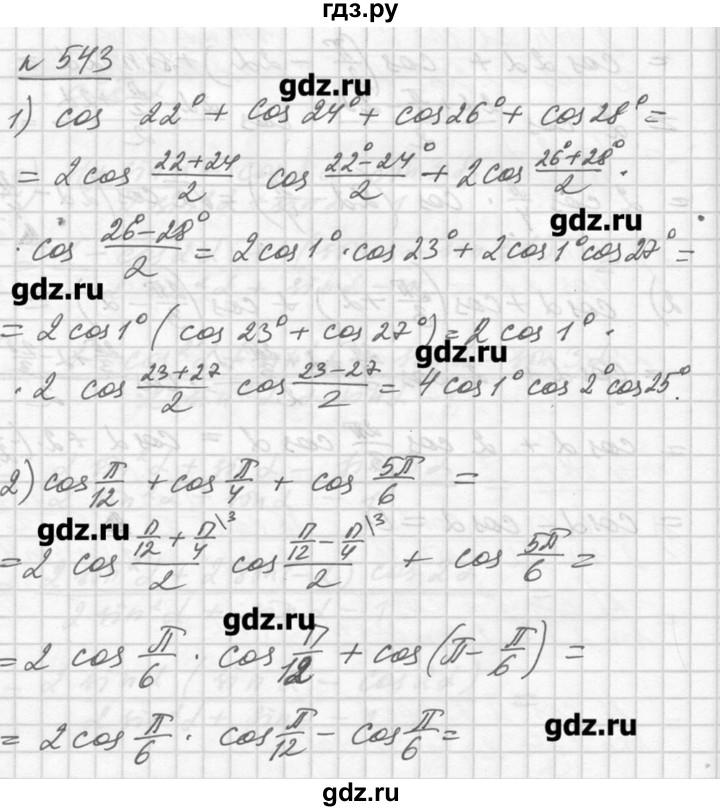 гдз.ру
№ 543
gdz.ru
1) cos 22° + cos 24° + cos 26° + cos 28° =
= 2 cos (22+24)/2 cos (22°-24°)/2 + 2 cos (26°+28°)/2 ·
gdz.ru
· cos (26°-28°)/2 = 2 cos 1° · cos 23° + 2 cos 1° cos 27° =
gdz.ru
= 2 cos 1° ( cos 23° + cos 27° ) = 2 cos 1° ·
gdz.ru
· 2 cos (23+27)/2 cos (23-27)/2 = 4 cos 1° cos 2° cos 25°.
2) cos π/12 + cos π/4 + cos 5π/6 =
gdz.ru
= 2 cos (π/12 + π/4 \3)/2 cos (π/12 - π/4 \3)/2 + cos 5π/6 =
gdz.ru
= 2 cos π/6 · cos π/12 + cos (π - π/6) =
gdz.ru
= 2 cos π/6 · cos π/12 - cos π/6 =
gdz.ru